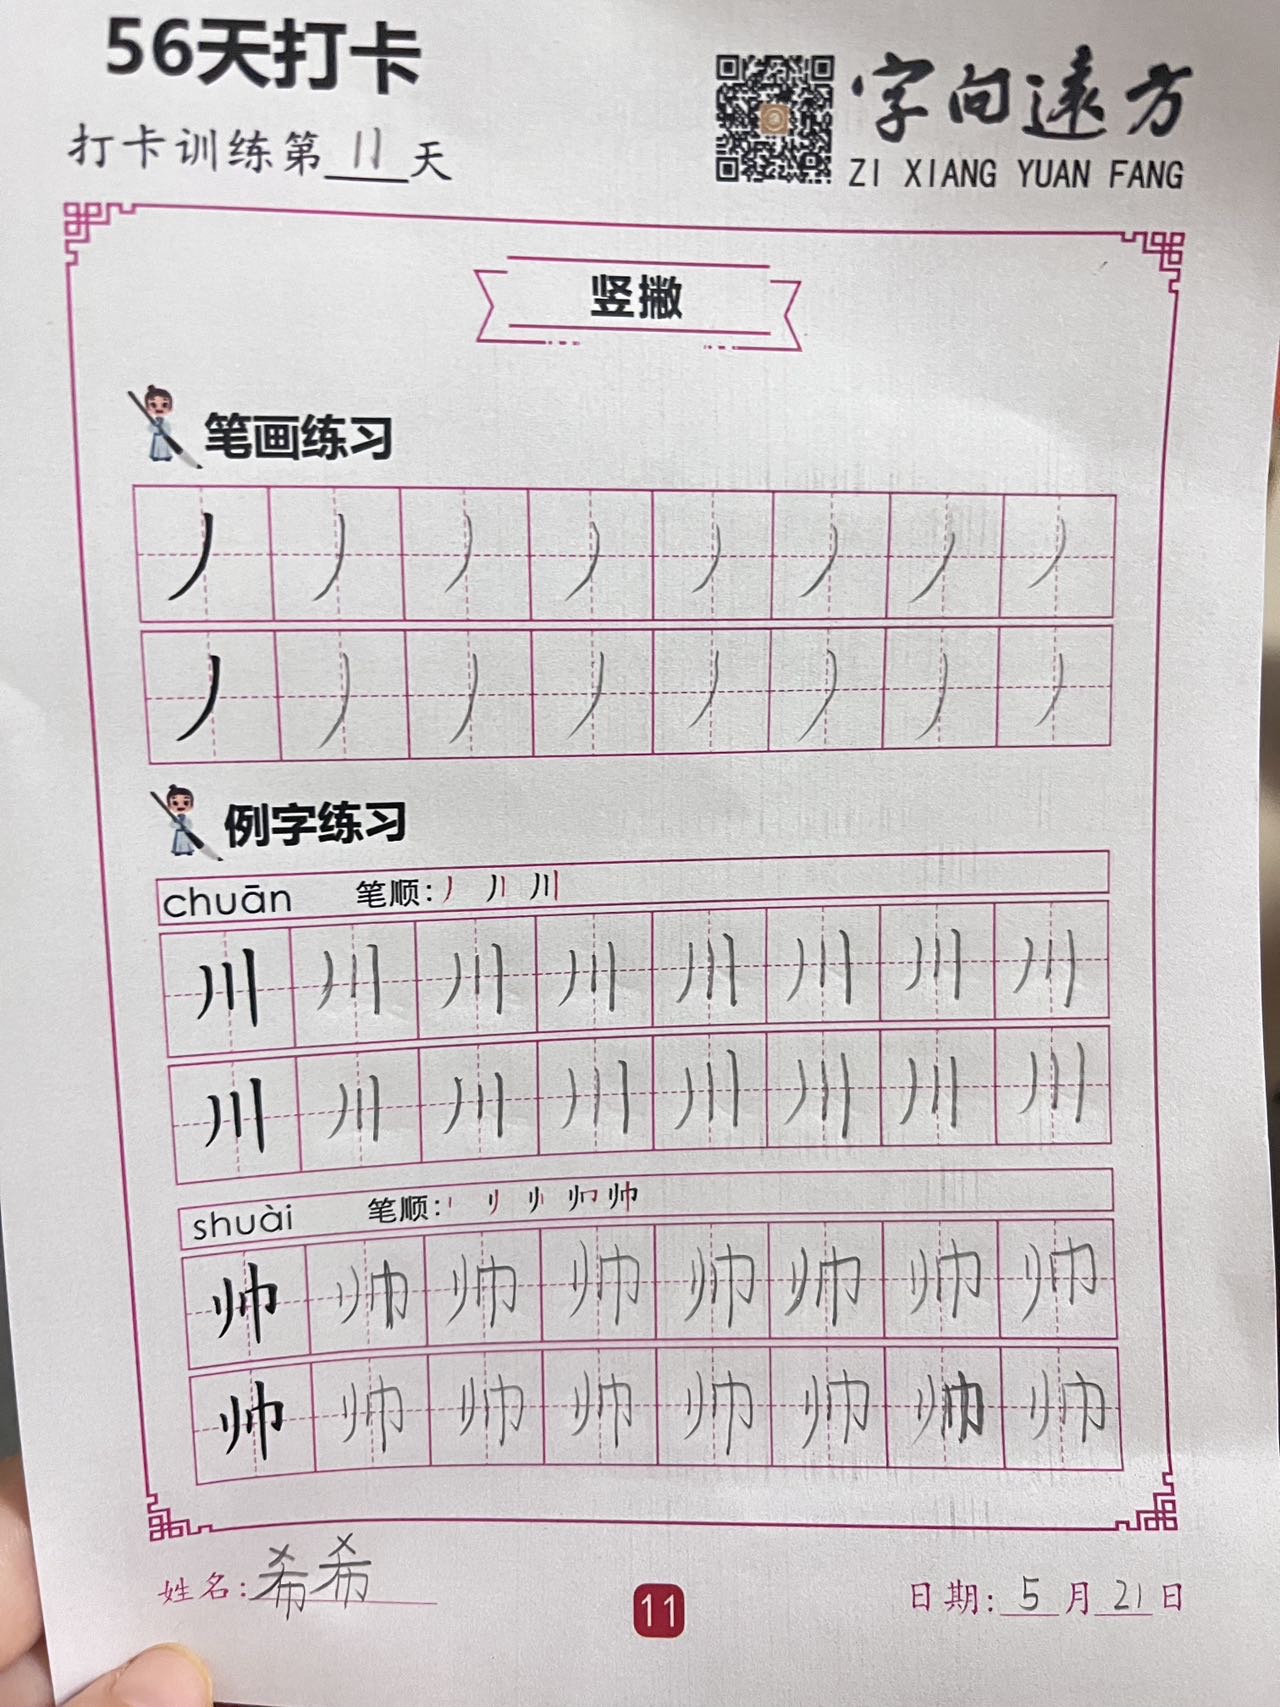 56天打卡
打卡训练第11天
字向远方
ZI XIANG YUAN FANG
竖撇
笔画练习
丿 丿 丿 丿 丿 丿 丿 丿
丿 丿 丿 丿 丿 丿 丿 丿
例字练习
chuān 笔顺: 丿 川 川
川 川 川 川 川 川 川 川
川 川 川 川 川 川 川 川
shuài 笔顺: 帅
帅 帅 帅 帅 帅 帅 帅 帅
帅 帅 帅 帅 帅 帅 帅 帅
姓名: 希希
11
日期: 5月21日